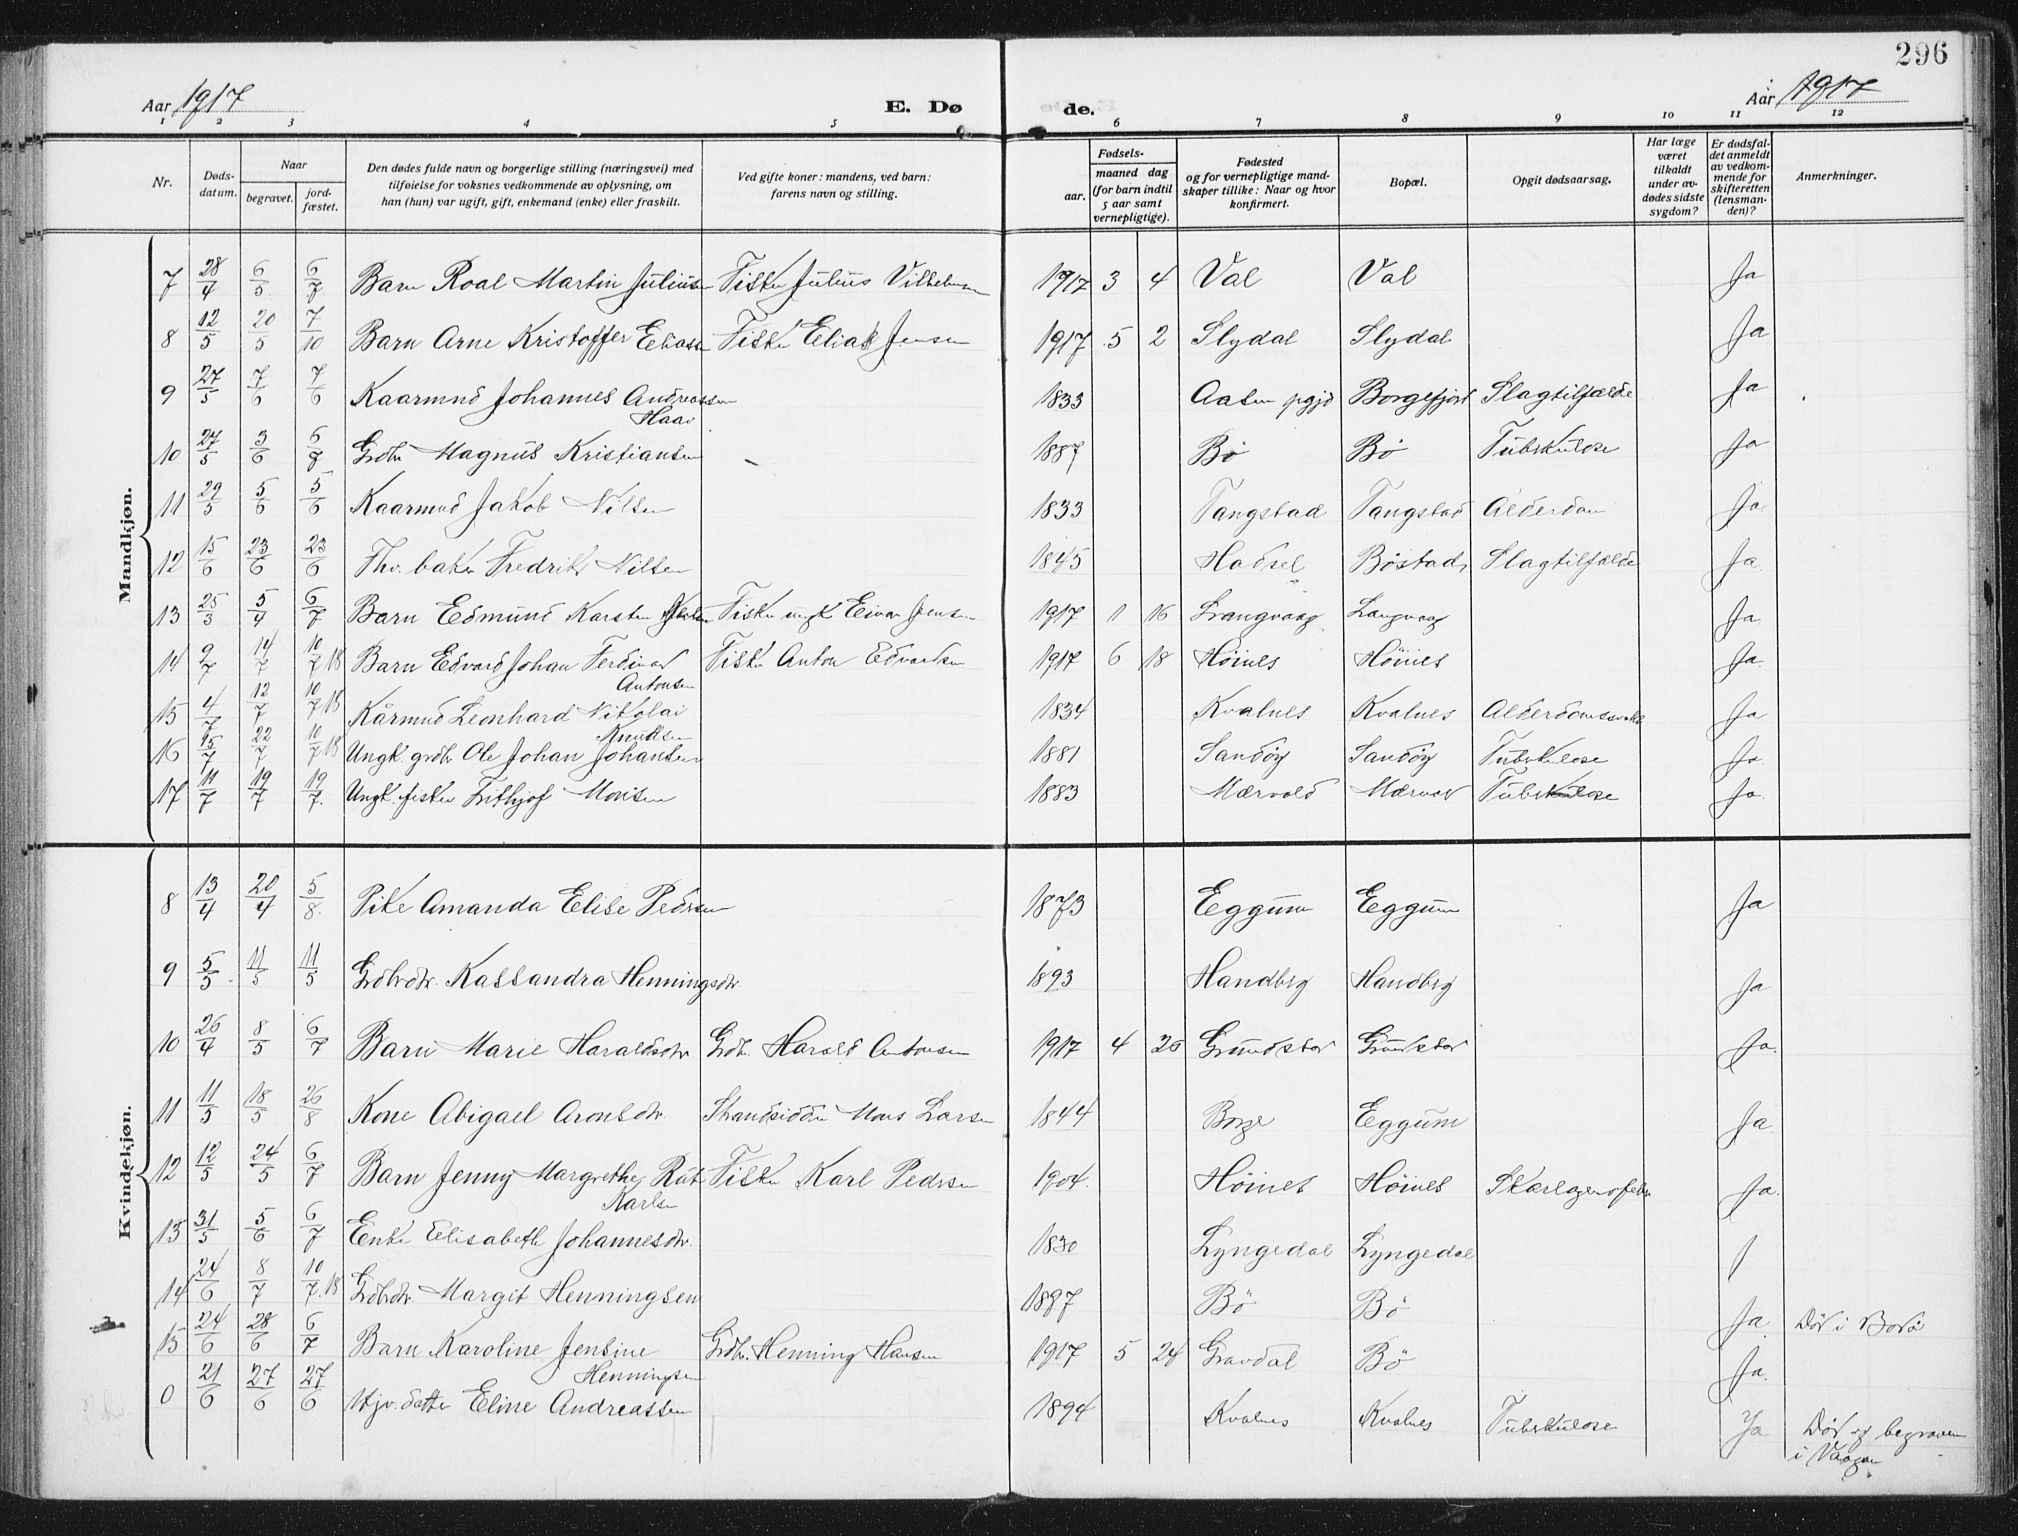 296
Aar 1917 E. Dø de. Aar 1917
1 2 3 4 5 6 7 8 9 10 11 12
Nr. Døds-datum. Naar begravet. jord-fæstet. Den dødes fulde navn og borgerlige stilling (næringsvei) med tilføielse for voksnes vedkommende av oplysning, om han (hun) var ugift, gift, enkemand (enke) eller fraskilt. Ved gifte koner: mandens, ved barn: farens navn og stilling. Fødsels- aar. maaned dag (for barn indtil 5 aar samt vernepligtige). Fødested og for vernepligtige mandskaper tillike: Naar og hvor konfirmert. Bopæl. Opgit dødsaarsag. Har læge været tilkaldt under avdødes sidste sygdom? Er dødsfaldet anmeldt av vedkommende for skifteretten (lensmanden)? Anmerkninger.
Mandkjøn.
7 28/4 6/5 6/7 Barn Roal Martin Juliussen Fisker Julius Vilhelmsen 1917 3 4 Val Val Ja
8 12/5 20/5 7/10 Barn Arne Kristoffer Eliassen Fisker Elias Jensen 1917 5 2 Slydal Slydal Ja
9 27/5 7/6 7/6 Kaarmnd Johannes Andreassen 1833 Aasen pgjd Borgefjord Slagtilfælde Ja
Haav
10 27/5 3/6 6/7 Grdbr Magnus Kristiansen 1887 Bø Bø Tuberkulose Ja
11 29/5 5/6 5/6 Kaarmnd Jakob Nilsen 1833 Tangstad Tangstad Alderdom Ja
12 15/6 23/6 23/6 Fhv. baker Fredrik Nilsen 1845 Hadsel Bøstad Slagtilfælde Ja
13 25/3 5/4 6/7 Barn Edmund Karsten Fisker ungk Eivar Jensen 1917 11 16 Langvaag Langvaag Ja
14 9/7 14/7 10/7 18 Barn Edvard Johan Ferdinad Fisker Anton Edvardsen 1917 6 18 Høines Høines Ja.
Antonsen
15 4/7 12/7 10/7 18 Kårmnd Leonhard Nikolai 1834 Kvalnes Kvalnes Alderdomssvakh Ja
Knudsen
16 15/7 22/7 10/7 18 Ungk. grdbr Ole Johan Johansen 1881 Sandøy Sandøy Tuberkulose Ja
17 11/7 19/7 19/7. Ungk. fisker Frithjof Monsen 1883 Mærvold Mærvol Tuberkulose Ja.
Kvindekjøn.
8 13/4 20/4 5/8. Pike Amanda Elise Pedersen 1873 Eggum Eggum Ja
9 5/5 11/5 11/5 Grdbrdtr. Kassandra Henningsdtr. 1893 Handberg Handberg Ja
10 26/4 8/5 6/7 Barn Marie Haraldsdtr Grdbr. Harald Antonsen 1917 4 26 Grundstad Grundstad Ja.
11 11/5 18/5 26/8 Kone Abigael Aronsdtr. Strandsidder Mons Larsen 1844 Borge Eggum Ja.
12 12/5 24/5 6/7 Barn Jenny Margrethe Rut Fisker Karl Pedersen 1904. Høines Høines Skarlagensfeber Ja.
Karlsen
13 31/5 5/6 6/7 Enke Elisabeth Johannesdtr. 1830 Lyngedal Lyngedal
14 24/6 8/7 10/7. 18 Grdbrdtr. Margit Henningsen 1897 Bø Bø Ja Død i Bodø
15 24/6 28/6 6/7 Barn Karoline Jensine Grdbr. Henning Hansen 1917 5 24 Gravdal Bø Ja.
Henningsen
0 21/6 27/6 27/6 Hjv. datter Eline Andreassen 1894 Kvalnes Kvalnes Tuberkulose Ja Død og begraven
i Vaagan